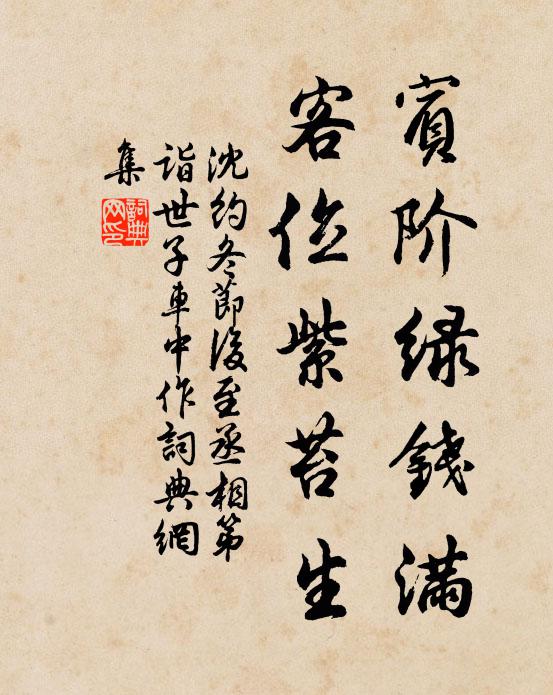 賓阶绿錢滿
客位紫苔生
沈約冬節後至丞相第
詣世子車中作詞典網
集
詞典
网印